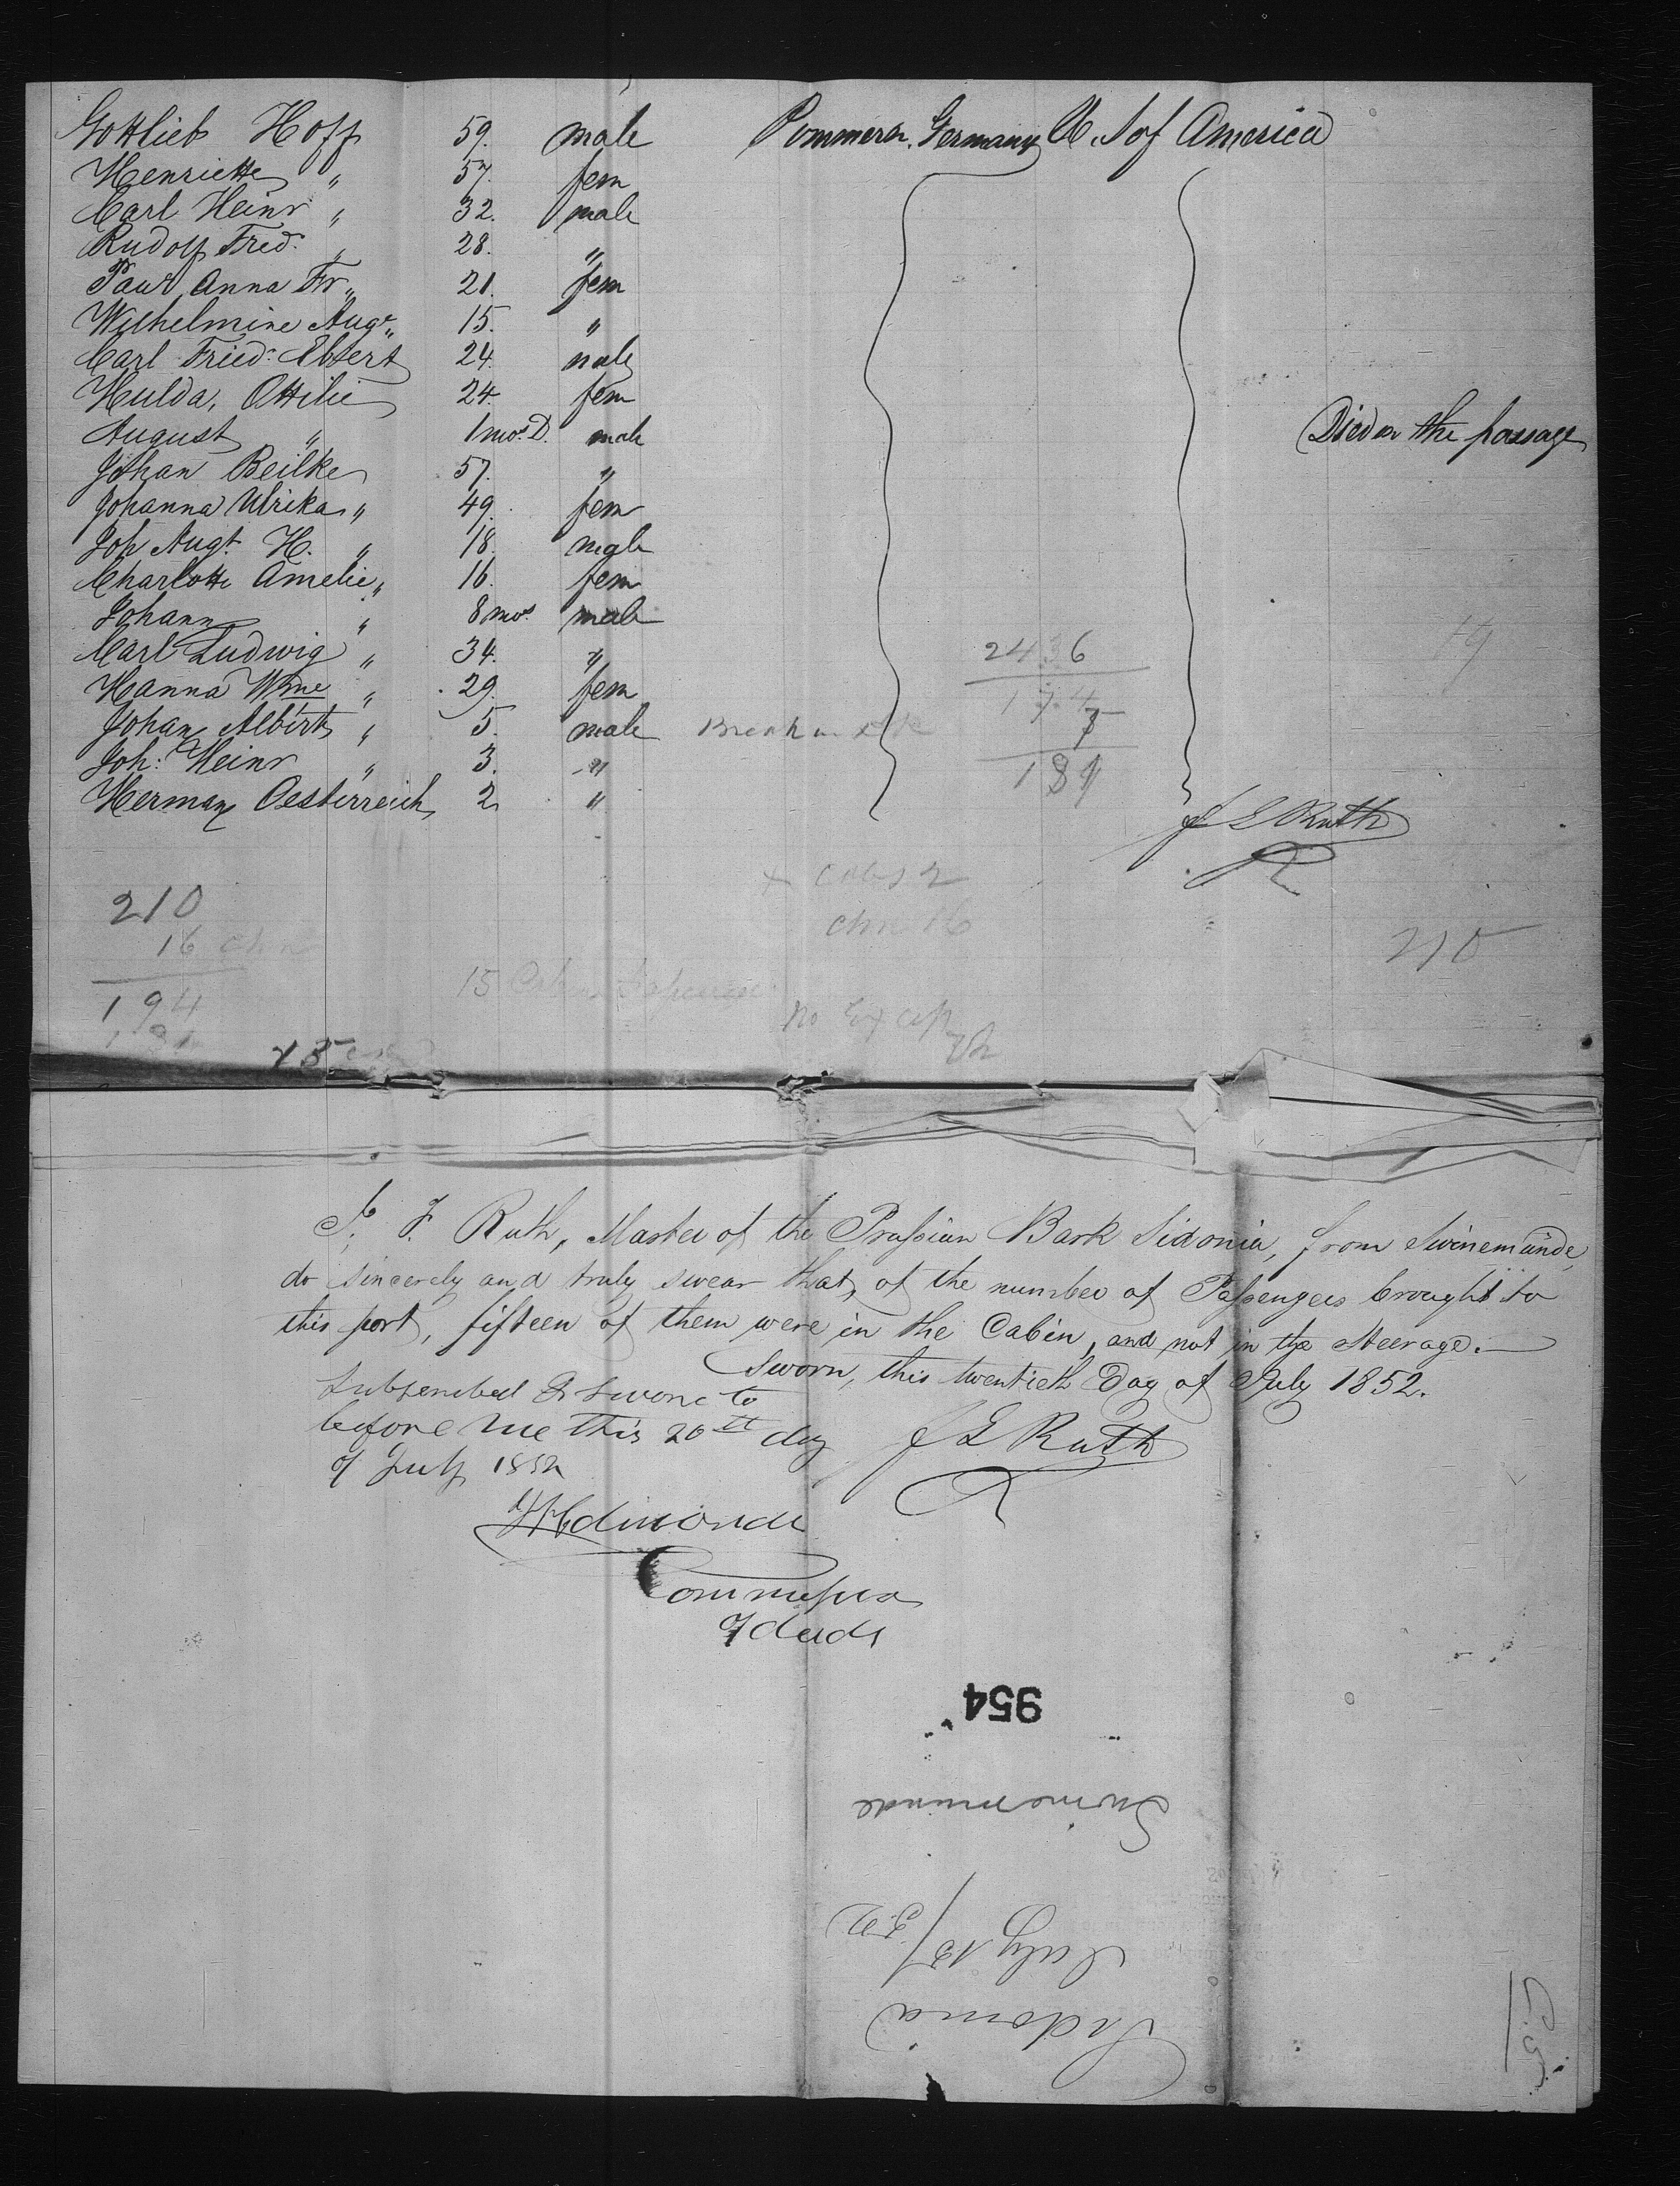 Gottlieb Hoff 59. male Pommern, Germany U. S of America
Henriette " 57. fem
Carl Heinr " 32. male
Rudolf Fred: " 28. "
Paul Anna Fr " 21. fem
Wilhelmine Augt " 15. "
Carl Fried: Ebbert 24. male
Hulda, Ottilie 24. fem
August " 1 mos D. male Died on the passage
Johan Beilke 57. "
Johanna Ulrika " 49. fem
Joh Augt. H. " 18. male
Charlotte Amelie " 16. fem
Johann " 8 mos male
Carl Ludwig " 34. "
Hanna Wme " 29. fem
Johan Albert " 5. male
Joh: Heinr " 3. "
Herman Oesterreich 2 "
2436
174
7
181
19
J E Ruth
210
16 chn
194
chn 16
210
15 Cabin
no
I, J. F. Ruth, Master of the Prussian Bark Sidonia, from Swinemünde,
do sincerely and truly swear that, of the number of Passengers brought to
this port, fifteen of them were in the Cabin, and not in the Steerage.—
Sworn, this twentieth Day of July 1852.
Subscribed & Sworn to
before me this 20th day
of July 1852
J E Ruth
Edmonds
Commissioner
of deeds
954
Swinemunde
July 15/52
Sidonia